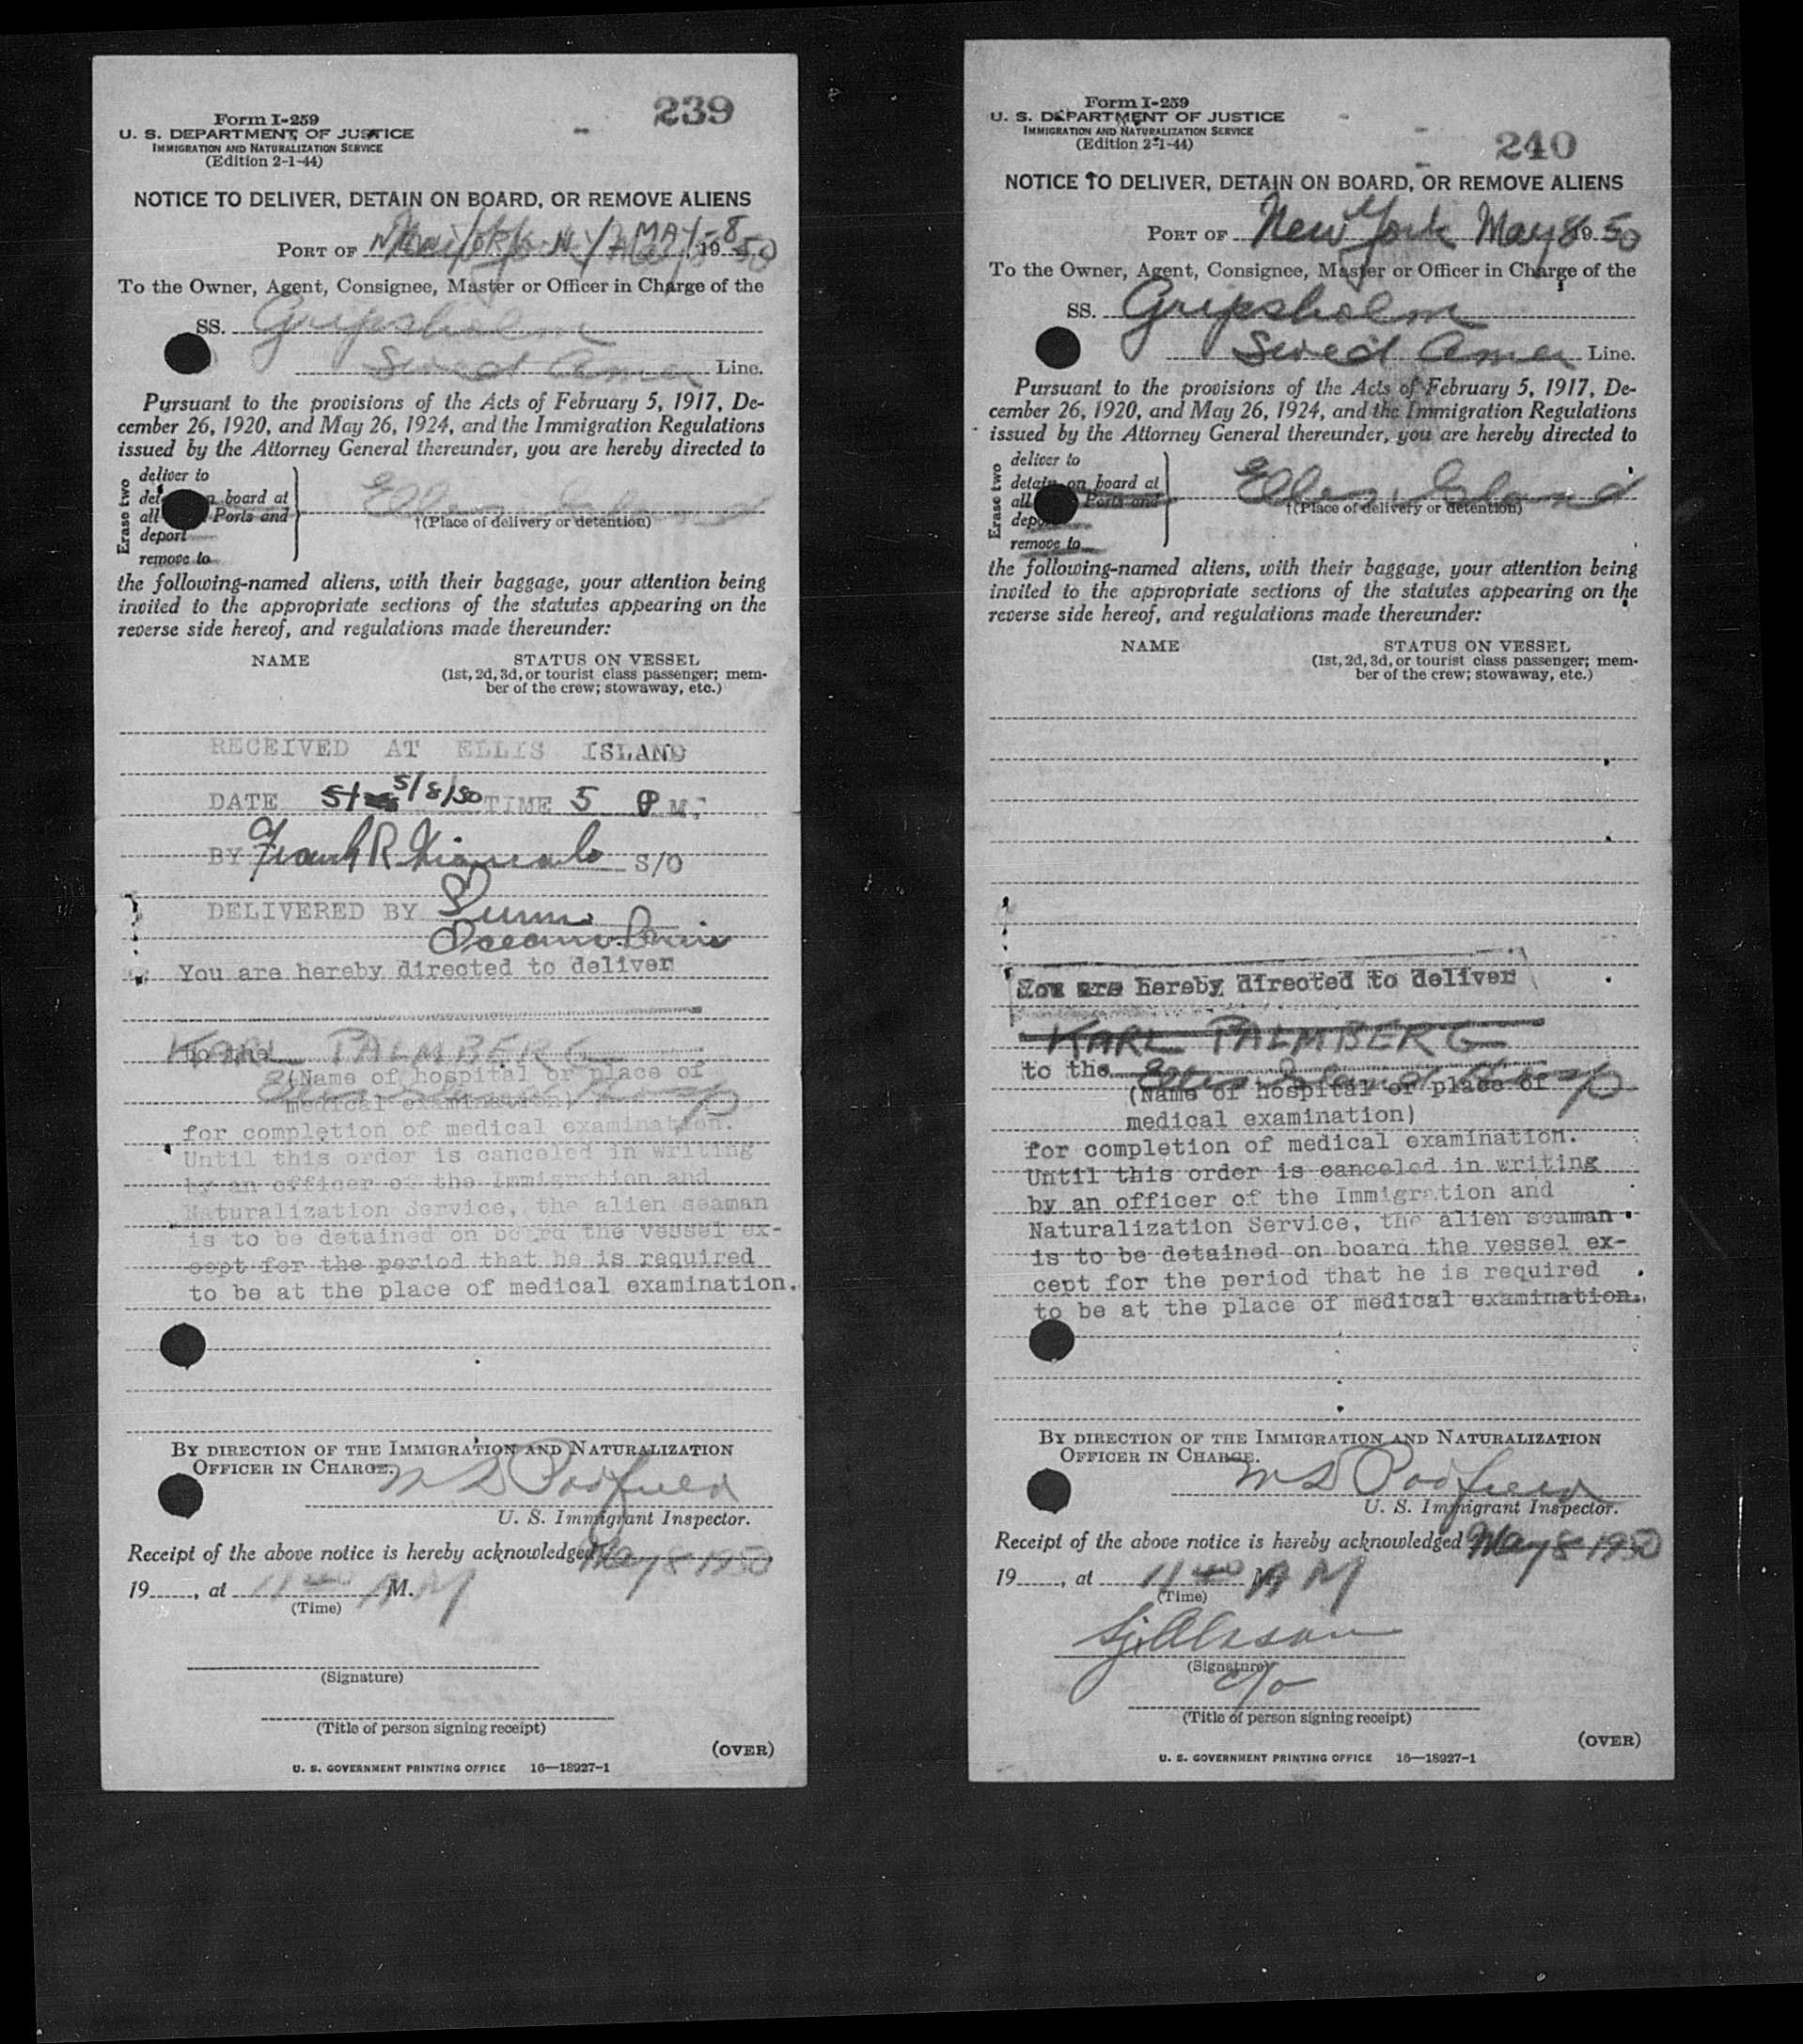 239
Form I-259
U. S. DEPARTMENT OF JUSTICE
IMMIGRATION AND NATURALIZATION SERVICE
(Edition 2-1-44)
NOTICE TO DELIVER, DETAIN ON BOARD, OR REMOVE ALIENS
PORT OF MAY -8 19 50
To the Owner, Agent, Consignee, Master or Officer in Charge of the
SS. Gripsholm
Swed Amer Line.
Pursuant to the provisions of the Acts of February 5, 1917, De-
cember 26, 1920, and May 26, 1924, and the Immigration Regulations
issued by the Attorney General thereunder, you are hereby directed to
Erase two
deliver to
board at
all Ports and
deport
remove to
Ellis Island
†(Place of delivery or detention)
the following-named aliens, with their baggage, your attention being
invited to the appropriate sections of the statutes appearing on the
reverse side hereof, and regulations made thereunder:
NAME STATUS ON VESSEL
(1st, 2d, 3d, or tourist class passenger; mem-
ber of the crew; stowaway, etc.)
RECEIVED AT ELLIS ISLAND
DATE 5/8/50 TIME 5 P M.
BY Frank R S/O
DELIVERED BY
You are hereby directed to deliver
KARL PALMBERG
to the Ellis Island Hosp
(Name of hospital or place of
medical examination)
for completion of medical examination.
Until this order is canceled in writing
by an officer of the Immigration and
Naturalization Service, the alien seaman
is to be detained on board the vessel ex-
cept for the period that he is required
to be at the place of medical examination.
BY DIRECTION OF THE IMMIGRATION AND NATURALIZATION
OFFICER IN CHARGE.
W S Podfield
U. S. Immigrant Inspector.
Receipt of the above notice is hereby acknowledged May 8 1950,
19......, at 11 40 A M M.
(Time)
(Signature)
(Title of person signing receipt)
(OVER)
U. S. GOVERNMENT PRINTING OFFICE 16—18927-1
Form I-259
U. S. DEPARTMENT OF JUSTICE
IMMIGRATION AND NATURALIZATION SERVICE
(Edition 2-1-44)
240
NOTICE TO DELIVER, DETAIN ON BOARD, OR REMOVE ALIENS
PORT OF New York May 8 19 50
To the Owner, Agent, Consignee, Master or Officer in Charge of the
SS. Gripsholm
Swed Amer Line.
Pursuant to the provisions of the Acts of February 5, 1917, De-
cember 26, 1920, and May 26, 1924, and the Immigration Regulations
issued by the Attorney General thereunder, you are hereby directed to
Erase two
deliver to
detain on board at
all Ports and
remove to
Ellis Island
†(Place of delivery or detention)
the following-named aliens, with their baggage, your attention being
invited to the appropriate sections of the statutes appearing on the
reverse side hereof, and regulations made thereunder:
NAME STATUS ON VESSEL
(1st, 2d, 3d, or tourist class passenger; mem-
ber of the crew; stowaway, etc.)
You are hereby directed to deliver
KARL PALMBERG
to the Ellis Island Hosp
(Name of hospital or place of
medical examination)
for completion of medical examination.
Until this order is canceled in writing
by an officer of the Immigration and
Naturalization Service, the alien seaman
is to be detained on board the vessel ex-
cept for the period that he is required
to be at the place of medical examination.
BY DIRECTION OF THE IMMIGRATION AND NATURALIZATION
OFFICER IN CHARGE.
W S Podfield
U. S. Immigrant Inspector.
Receipt of the above notice is hereby acknowledged May 8 1950
19......, at 11 40 A M
(Time)
(Signature)
c/o
(Title of person signing receipt)
(OVER)
U. S. GOVERNMENT PRINTING OFFICE 16—18927-1